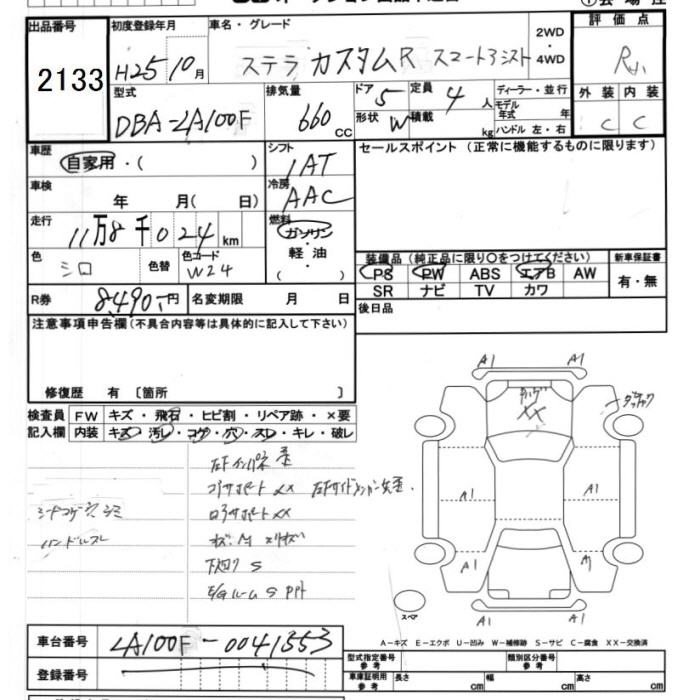 出品番号 初度登録年月 車名・グレード 2WD ・ 4WD 評価点
2133 H25 10月 ステラ カスタムR スマートアシスト R
型式 排気量 ドア 5 定員 4人 ディーラー・並行 外装 内装
DBA-LA100F 660 CC 形状 W 積載 kg モデル年式 年 ハンドル 左・右 C C
車歴 シフト セールスポイント (正常に機能するものに限ります)
自家用・( ) IAT
車検 冷房
年 月( 日) AAC
走行 燃料
11万8千024km ガソリン・軽油・( )
色 色替 色コード 装備品 (純正品に限り○をつけてください) 新車保証書
シロ W24 PS PW ABS エアB AW 有・無
SR ナビ TV カワ
R券 8,490円 名変期限 月 日 後日品
注意事項申告欄(不具合内容等は具体的に記入して下さい)
修復歴 有 〔箇所 〕
検査員 FW キズ・飛石・ヒビ割・リペア跡・×要
記入欄 内装 キズ・汚レ・コゲ・穴・スレ・キレ・破レ
シートコゲ穴シミ
ハンドルスレ
コアサポート XX
ロアサポート XX
下廻り S
E/Gルーム S
A1 A1
XX
A1 A1
A1 A1
A1 A1
スペア
A-キズ E-エクボ U-凹み W-補修跡 S-サビ C-腐食 XX-交換済
車台番号 LA100F-0041353
登録番号
型式指定番号 参考 類別区分番号 参考
車庫証明用 参考 長さ cm 幅 cm 高さ cm